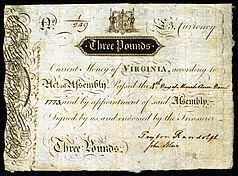 No 249 £3, Currency
Three Pounds
Current Money of VIRGINIA, according to
Act of Assembly Passed the of March Anno Dom
1773, and by appointment of said Assembly,
Signed by us, and endorsed by the Treasurer
Peyton Randolph
Three Pounds. John Blair